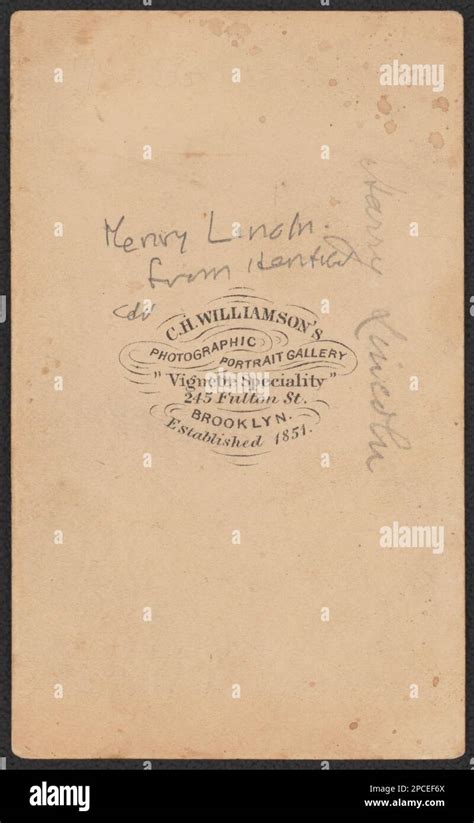 alamy
Henry Lincoln.
from
cdv
Harry Lincoln
C.H. WILLIAMSON'S
PHOTOGRAPHIC
PORTRAIT GALLERY
"Vignette Speciality"
245 Fulton St.
BROOKLYN.
Established 1851.
alamy
alamy
Image ID: 2PCEF6X
www.alamy.com